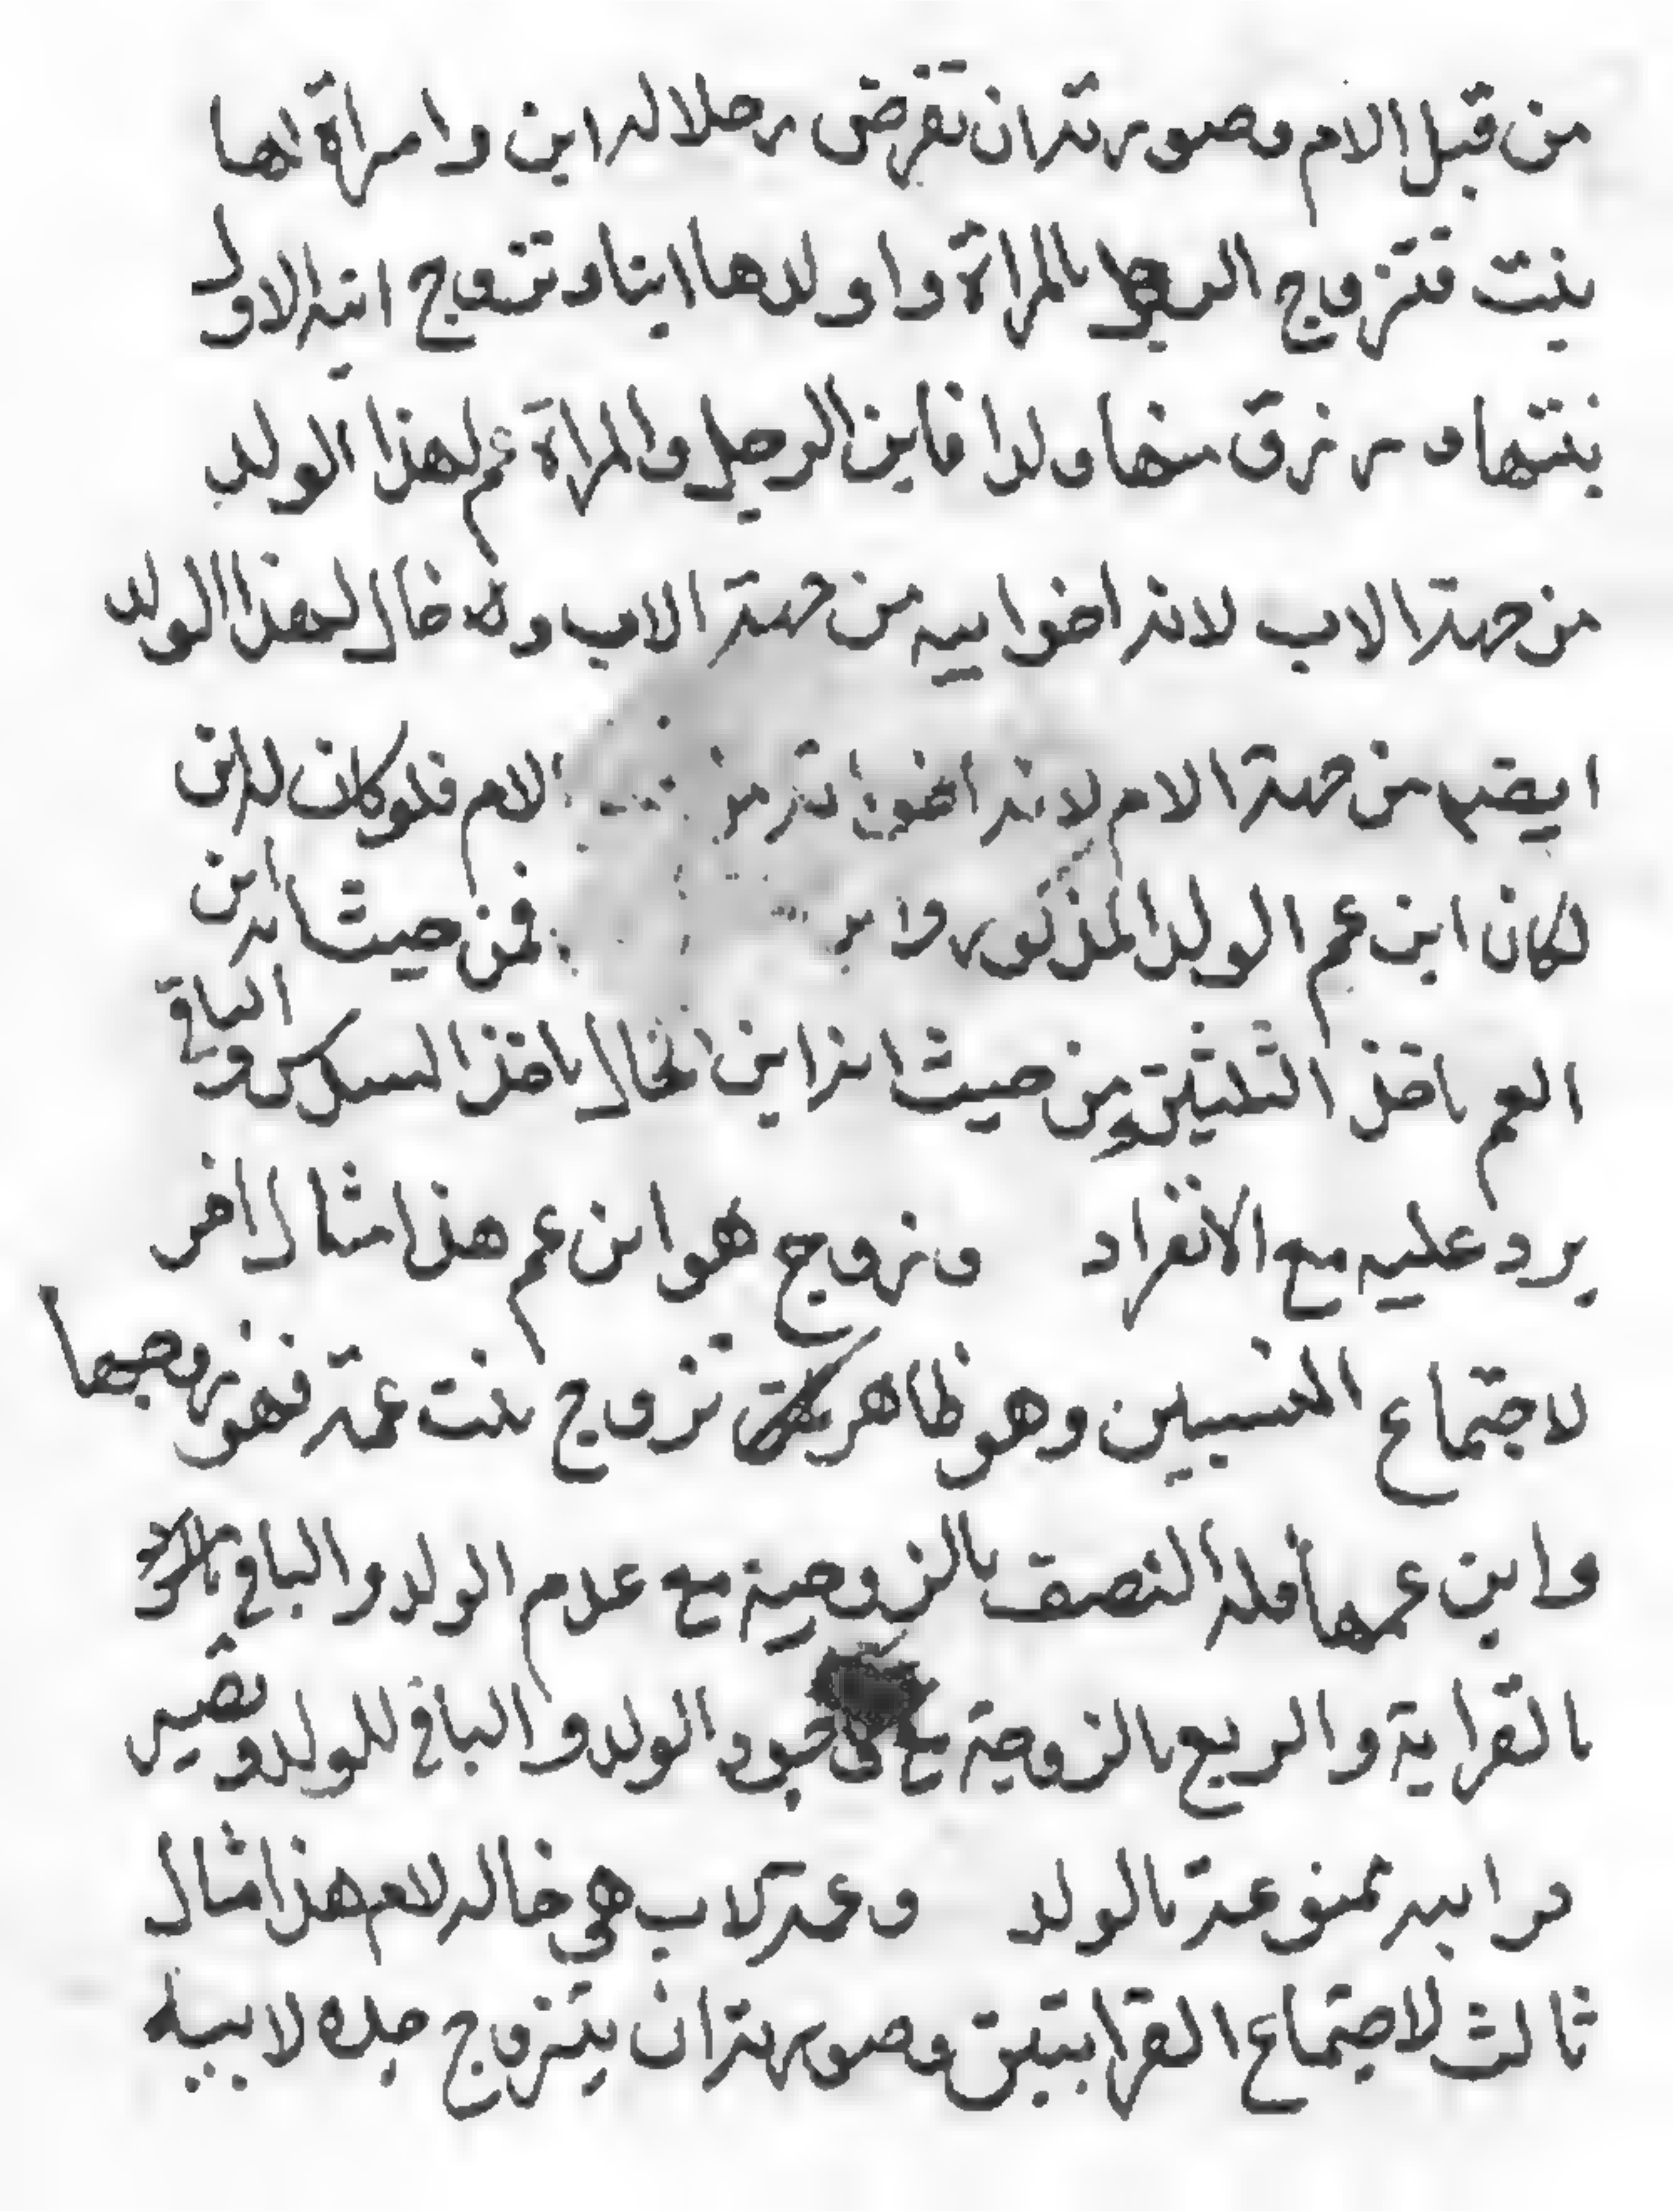 من قبل الام وصورته ان تفرض رجلا له ابن وامراة لها
بنت فتزوج الرجل بالمراة واولدها ابنا وتزوج ابنه الاول
بنتها ورزق منها ولدا فابن الرجل والمراة عم لهذا الولد
من جهة الاب لانه اخوا بيه من جهة الاب وله خال لهذا الولد
ايضا من جهة الام لانه اخوا الام فلو كان له ابن
لكان ابن عم الولد المذكور وابن فمن حيث انه ابن
العم ياخذ الثلثين ومن حيث انه ابن الخال ياخذ السدس والباقي
يرد عليه مع الانفراد وزوج هو ابن عم هذا مثال اخر
لاجتماع النسبين وهو ظاهر تزوج بنت عمه فهو زوجها
وابن عمها فله النصف بالزوجية مع عدم الولد والباقي
بالقرابة والربع بالزوجية مع وجود الولد والباقي للولد وتصير
قرابته ممنوعة بالولد وعمة لاب هي خاله لام هذا مثال
ثالث لاجتماع القرابتين وصورته ان يتزوج جده لابيه